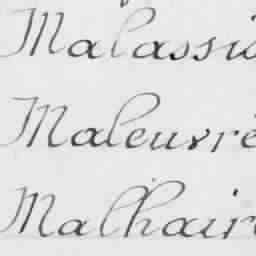 Malassi
Maleuvre
Malhair